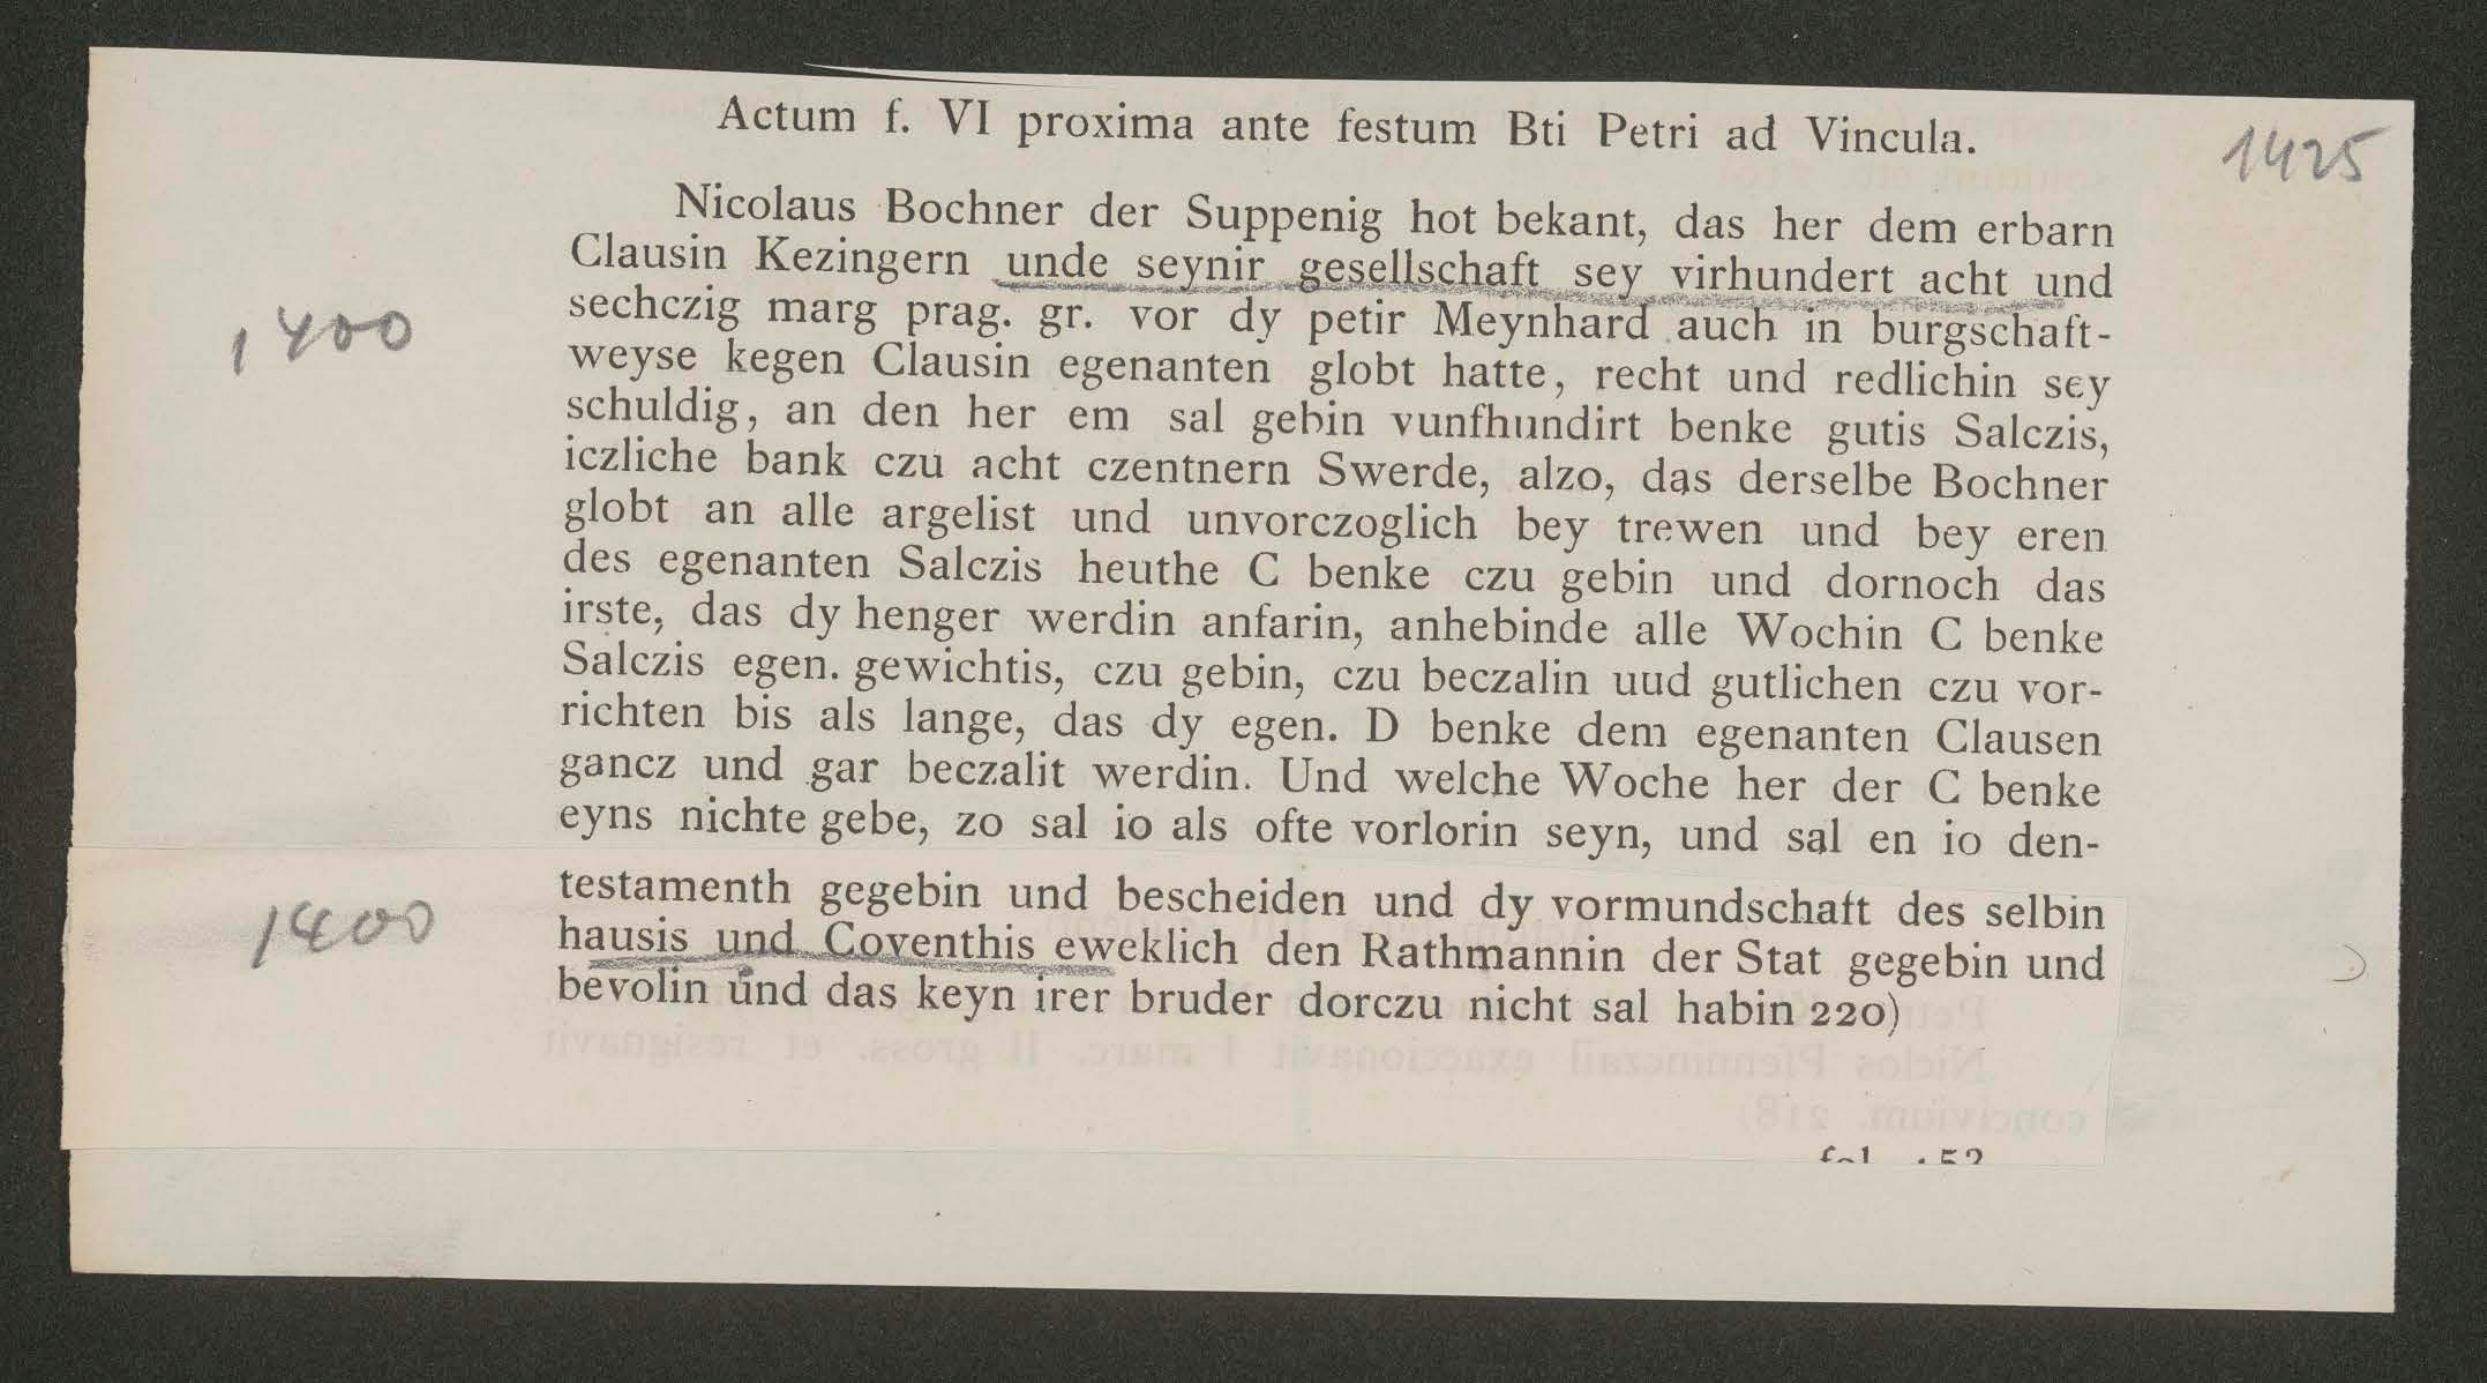 Actum f. VI proxima ante festum Bti Petri ad Vincula.
1425
Nicolaus Bochner der Suppenig hot bekant, das her dem erbarn
Clausin Kezingern unde seynir gesellschaft sey virhundert acht und
sechczig marg prag. gr. vor dy petir Meynhard auch in burgschaft-
1400
weyse kegen Clausin egenanten globt hatte, recht und redlichin sey
schuldig, an den her em sal gebin vunfhundirt benke gutis Salczis,
iczliche bank czu acht czentnern Swerde, alzo, das derselbe Bochner
globt an alle argelist und unvorczoglich bey trewen und bey eren
des egenanten Salczis heuthe C benke czu gebin und dornoch das
irste, das dy henger werdin anfarin, anhebinde alle Wochin C benke
Salczis egen. gewichtis, czu gebin, czu beczalin uud gutlichen czu vor-
richten bis als lange, das dy egen. D benke dem egenanten Clausen
gancz und gar beczalit werdin. Und welche Woche her der C benke
eyns nichte gebe, zo sal io als ofte vorlorin seyn, und sal en io den-
testamenth gegebin und bescheiden und dy vormundschaft des selbin
1400
hausis und Coventhis eweklich den Rathmannin der Stat gegebin und
bevolin und das keyn irer bruder dorczu nicht sal habin 220)